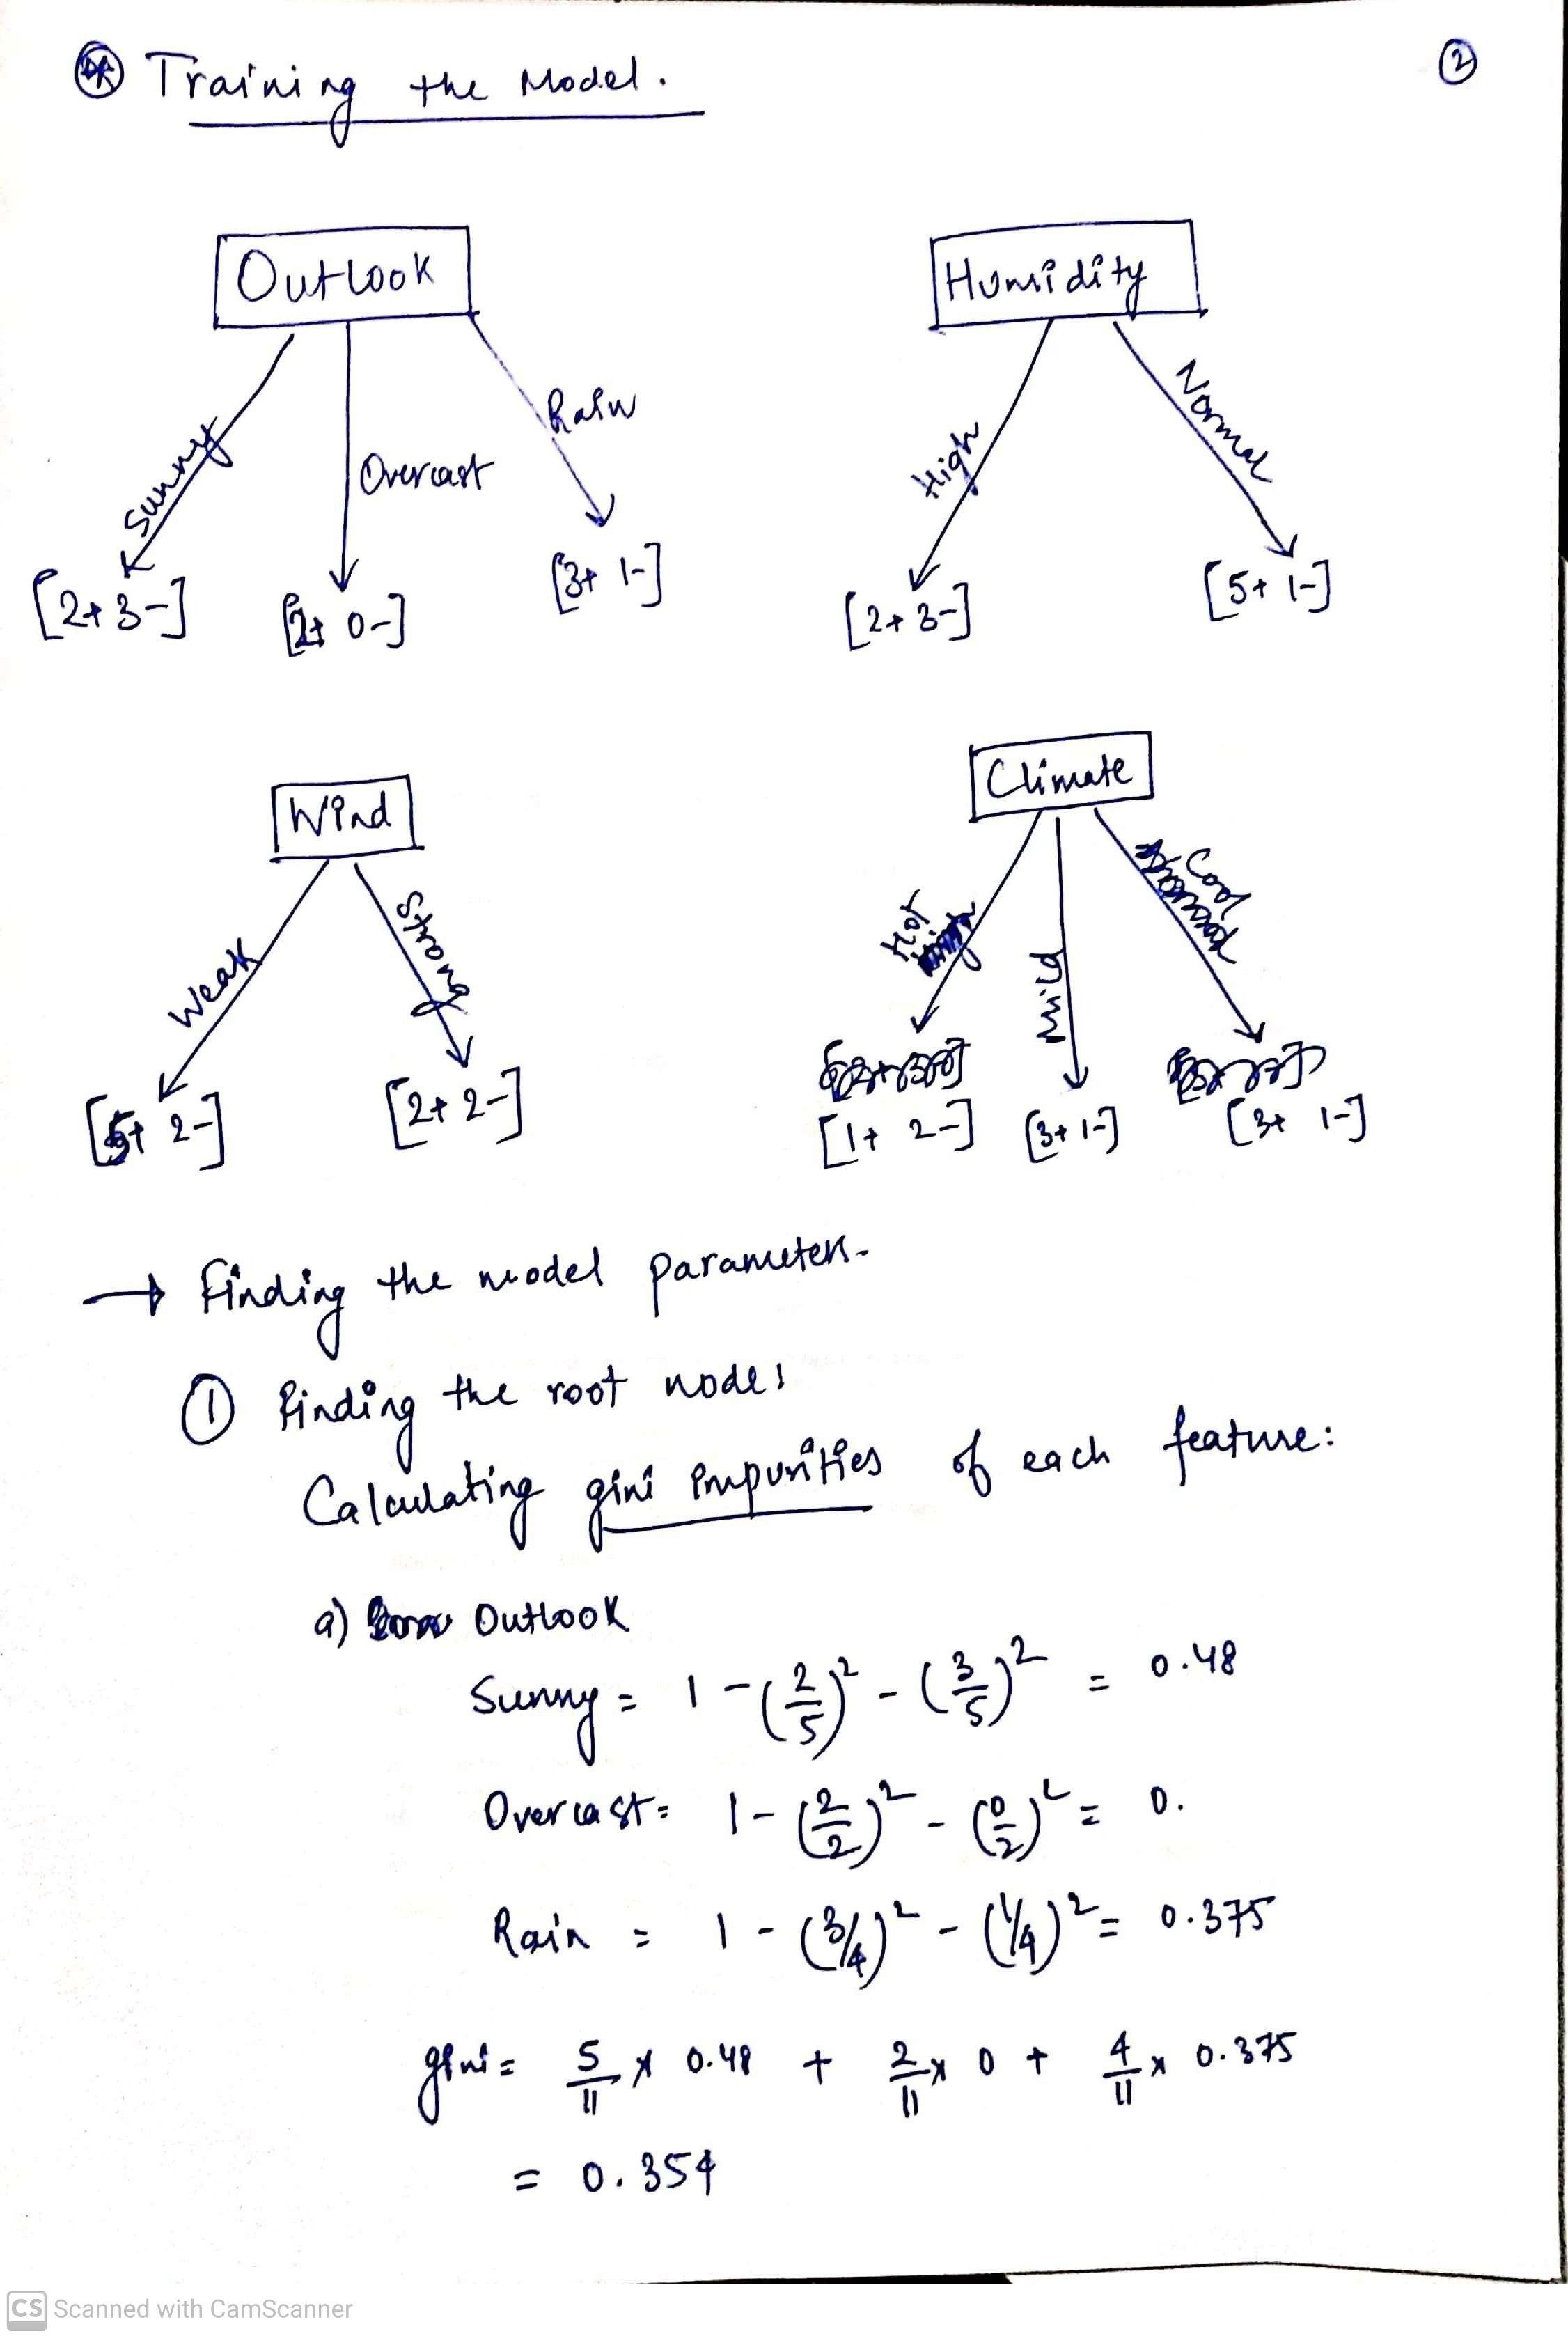 Training the Model.
2
Outlook
Sunny
Overcast
Rain
[2+ 3-]
[2+ 0-]
[3+ 1-]
Humidity
High
Normal
[2+ 3-]
[5+ 1-]
Wind
Weak
Strong
[5+ 2-]
[2+ 2-]
Climate
Hot
Mild
Cool
[1+ 2-]
[3+ 1-]
[3+ 1-]
→ Finding the model parameters.
① Finding the root node:
Calculating gini impurities of each feature:
a) Outlook
Sunny = 1 - (2/5)² - (3/5)² = 0.48
Overcast = 1 - (2/2)² - (0/2)² = 0.
Rain = 1 - (3/4)² - (1/4)² = 0.375
gini = 5/11 x 0.48 + 2/11 x 0 + 4/11 x 0.375
= 0.354
CS Scanned with CamScanner